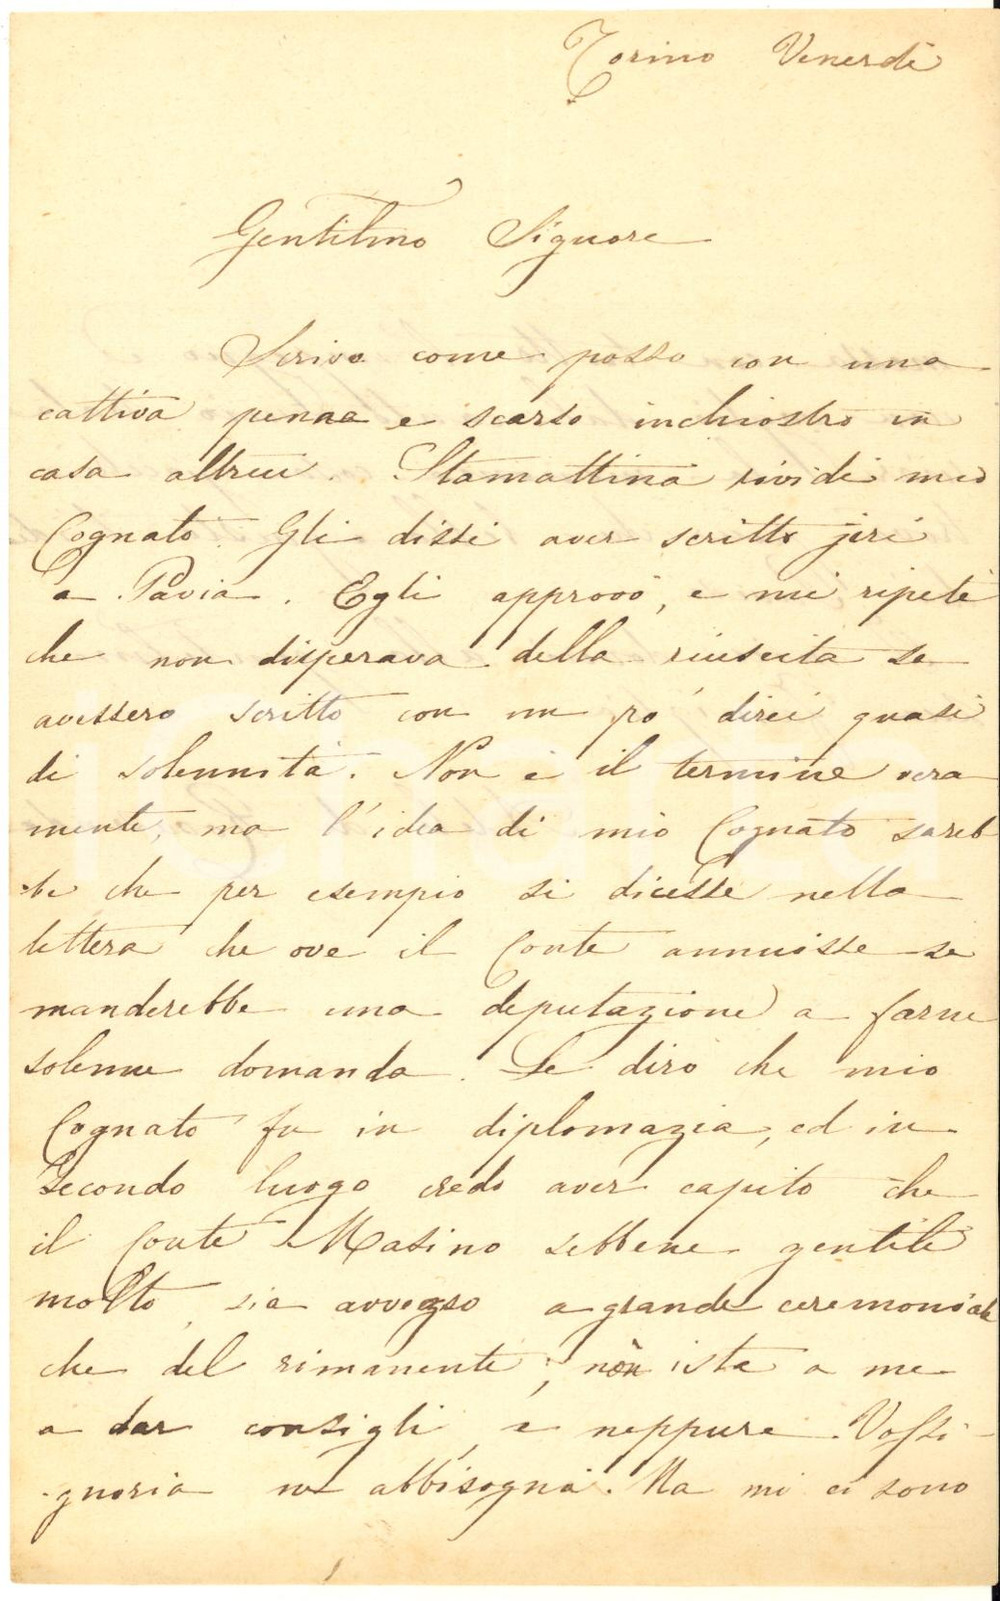 Torino Venerdì
Gentilmo Signore
Scrivo come posso con una
cattiva penna e scarso inchiostro in
casa altrui. Stamattina rividi mio
Cognato. Gli dissi aver scritto jeri
a Pavia. Egli approvò, e mi ripetè
che non disperava della riuscita se
avessero scritto con un pò direi quasi
di solennità. Non è il termine vera
mente, ma l'idea di mio Cognato sareb
be che per esempio si dicesse nella
lettera che ove il Conte annuisse si
manderebbe una deputazione a farne
solenne domanda. Le dirò che mio
Cognato fu in diplomazia, ed in
secondo luogo credo aver capito che
il Conte Masino sebbene gentile
molto, sia avvezzo a grande ceremoniale
che del rimanente; non ista a me
a dar consigli, e neppure Vossi-
gnoria ne abbisogna. Ma mi ci sono